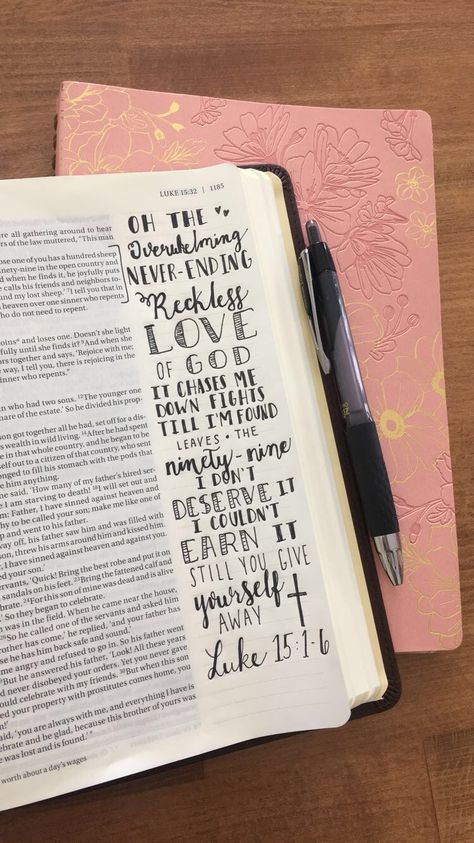 LUKE 15:32 | 1185
re all gathering around to hear
rs of the law muttered, "This man
ose one of you has a hundred sheep
ninety-nine in the open country and
he joyfully puts
calls his friends and neighbors to-
und my lost sheep.' ⁷I tell you that in
heaven over one sinner who repents
ho do not need to repent.
coins and loses one. Doesn't she light
efully until she finds it? ⁹And when she
ors together and says, 'Rejoice with me;
e way, I tell you, there is rejoicing in the
sinner who repents."
n who had two sons. ¹²The younger one
hare of the estate.' So he divided his prop-
son got together all he had, set off for a dis-
wealth in wild living. ¹⁴After he had spent
e in that whole country, and he began to be
self out to a citizen of that country, who sent
onged to fill his stomach with the pods that
e him anything.
he said, 'How many of my father's hired ser-
I am starving to death! ¹⁸I will set out and
Father, I have sinned against heaven and
thy to be called your son; make me like one
p and went to his father.
ay off, his father saw him and was filled with
son, threw his arms around him and kissed him.
I have sinned against heaven and against you.
ed your son.'
vants, 'Quick! Bring the best robe and put it on
ndals on his feet. ²³Bring the fattened calf and
e. ²⁴For this son of mine was dead and is alive
' So they began to celebrate.
n was in the field. When he came near the house,
²⁶So he called one of the servants and asked him
rother has come,' he replied, 'and your father has
e he has him back safe and sound.'
ame angry and refused to go in. So his father went
But he answered his father, 'Look! All these years
d never disobeyed your orders. Yet you never gave
ould celebrate with my friends. ³⁰But when this son
property with prostitutes comes home, you
him!'
said, 'you are always with me, and everything I have is
lebrate and be glad, because this brother of yours was
e was lost and is found.'"
worth about a day's wages
OH THE
Overwhelming
NEVER-ENDING
Reckless
LOVE
OF GOD
IT CHASES ME
DOWN FIGHTS
TILL I'M FOUND
LEAVES • THE
ninety-nine
I DON'T
DESERVE IT
I COULDN'T
EARN IT
STILL YOU GIVE
yourself
AWAY
Luke 15:1-6